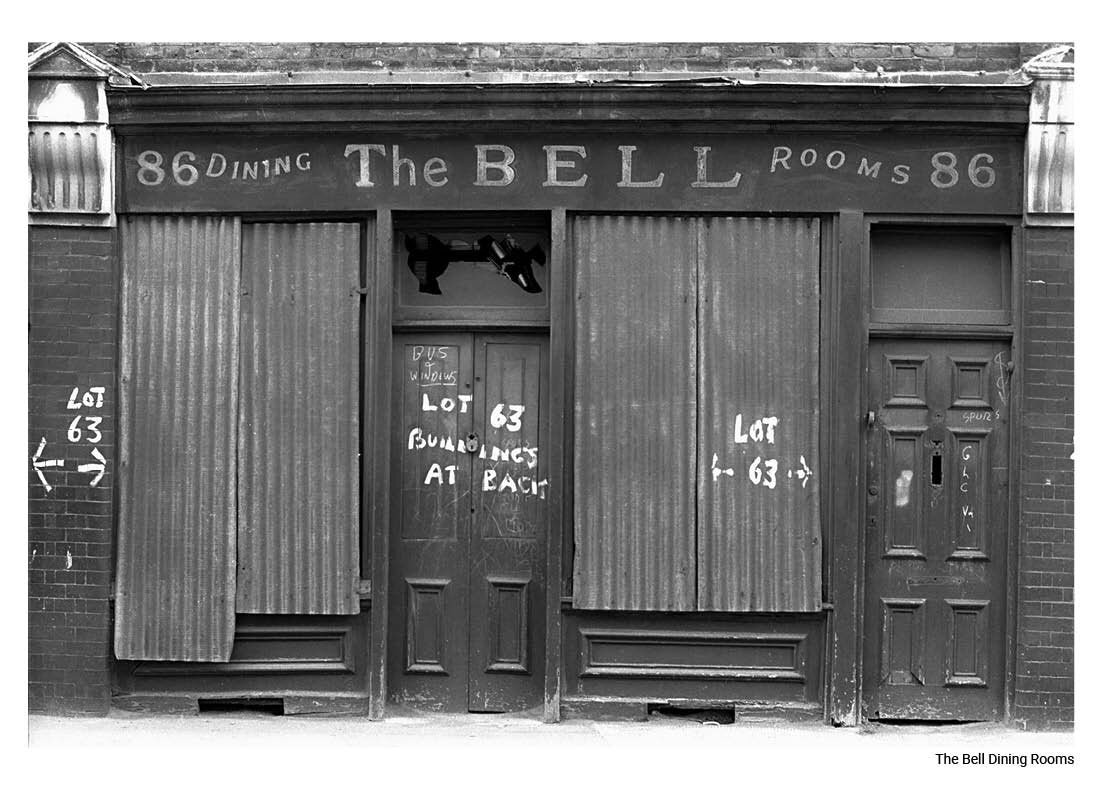 86 DINING The BELL ROOMS 86
LOT
63
BUS
&
WINDOWS
LOT 63
BUILDINGS
AT BACK
LOT
63
SPURS
GLC
The Bell Dining Rooms